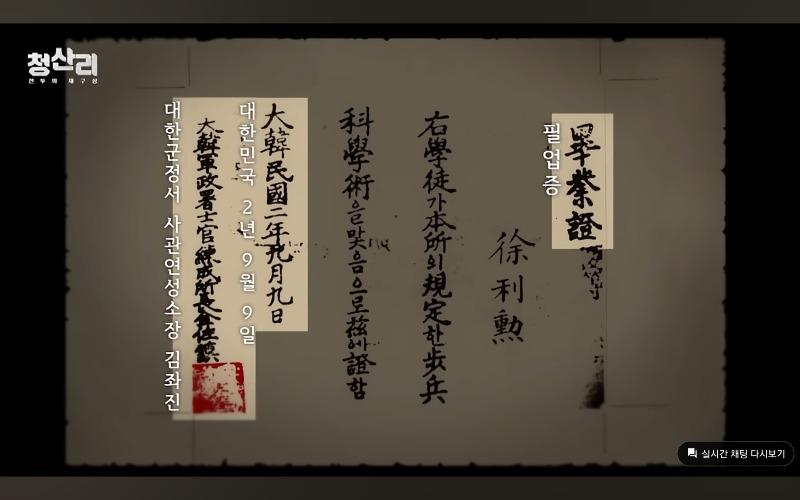 청산리
전투의 재구성
畢業證
필업증
徐利勲
右學徒가本所의規定한步兵
科學術을맟음으로玆에證함
大韓民國二年九月九日
대한민국 2년 9월 9일
大韓軍政署士官練成所長金佐鎭
대한군정서 사관연성소장 김좌진
실시간 채팅 다시보기